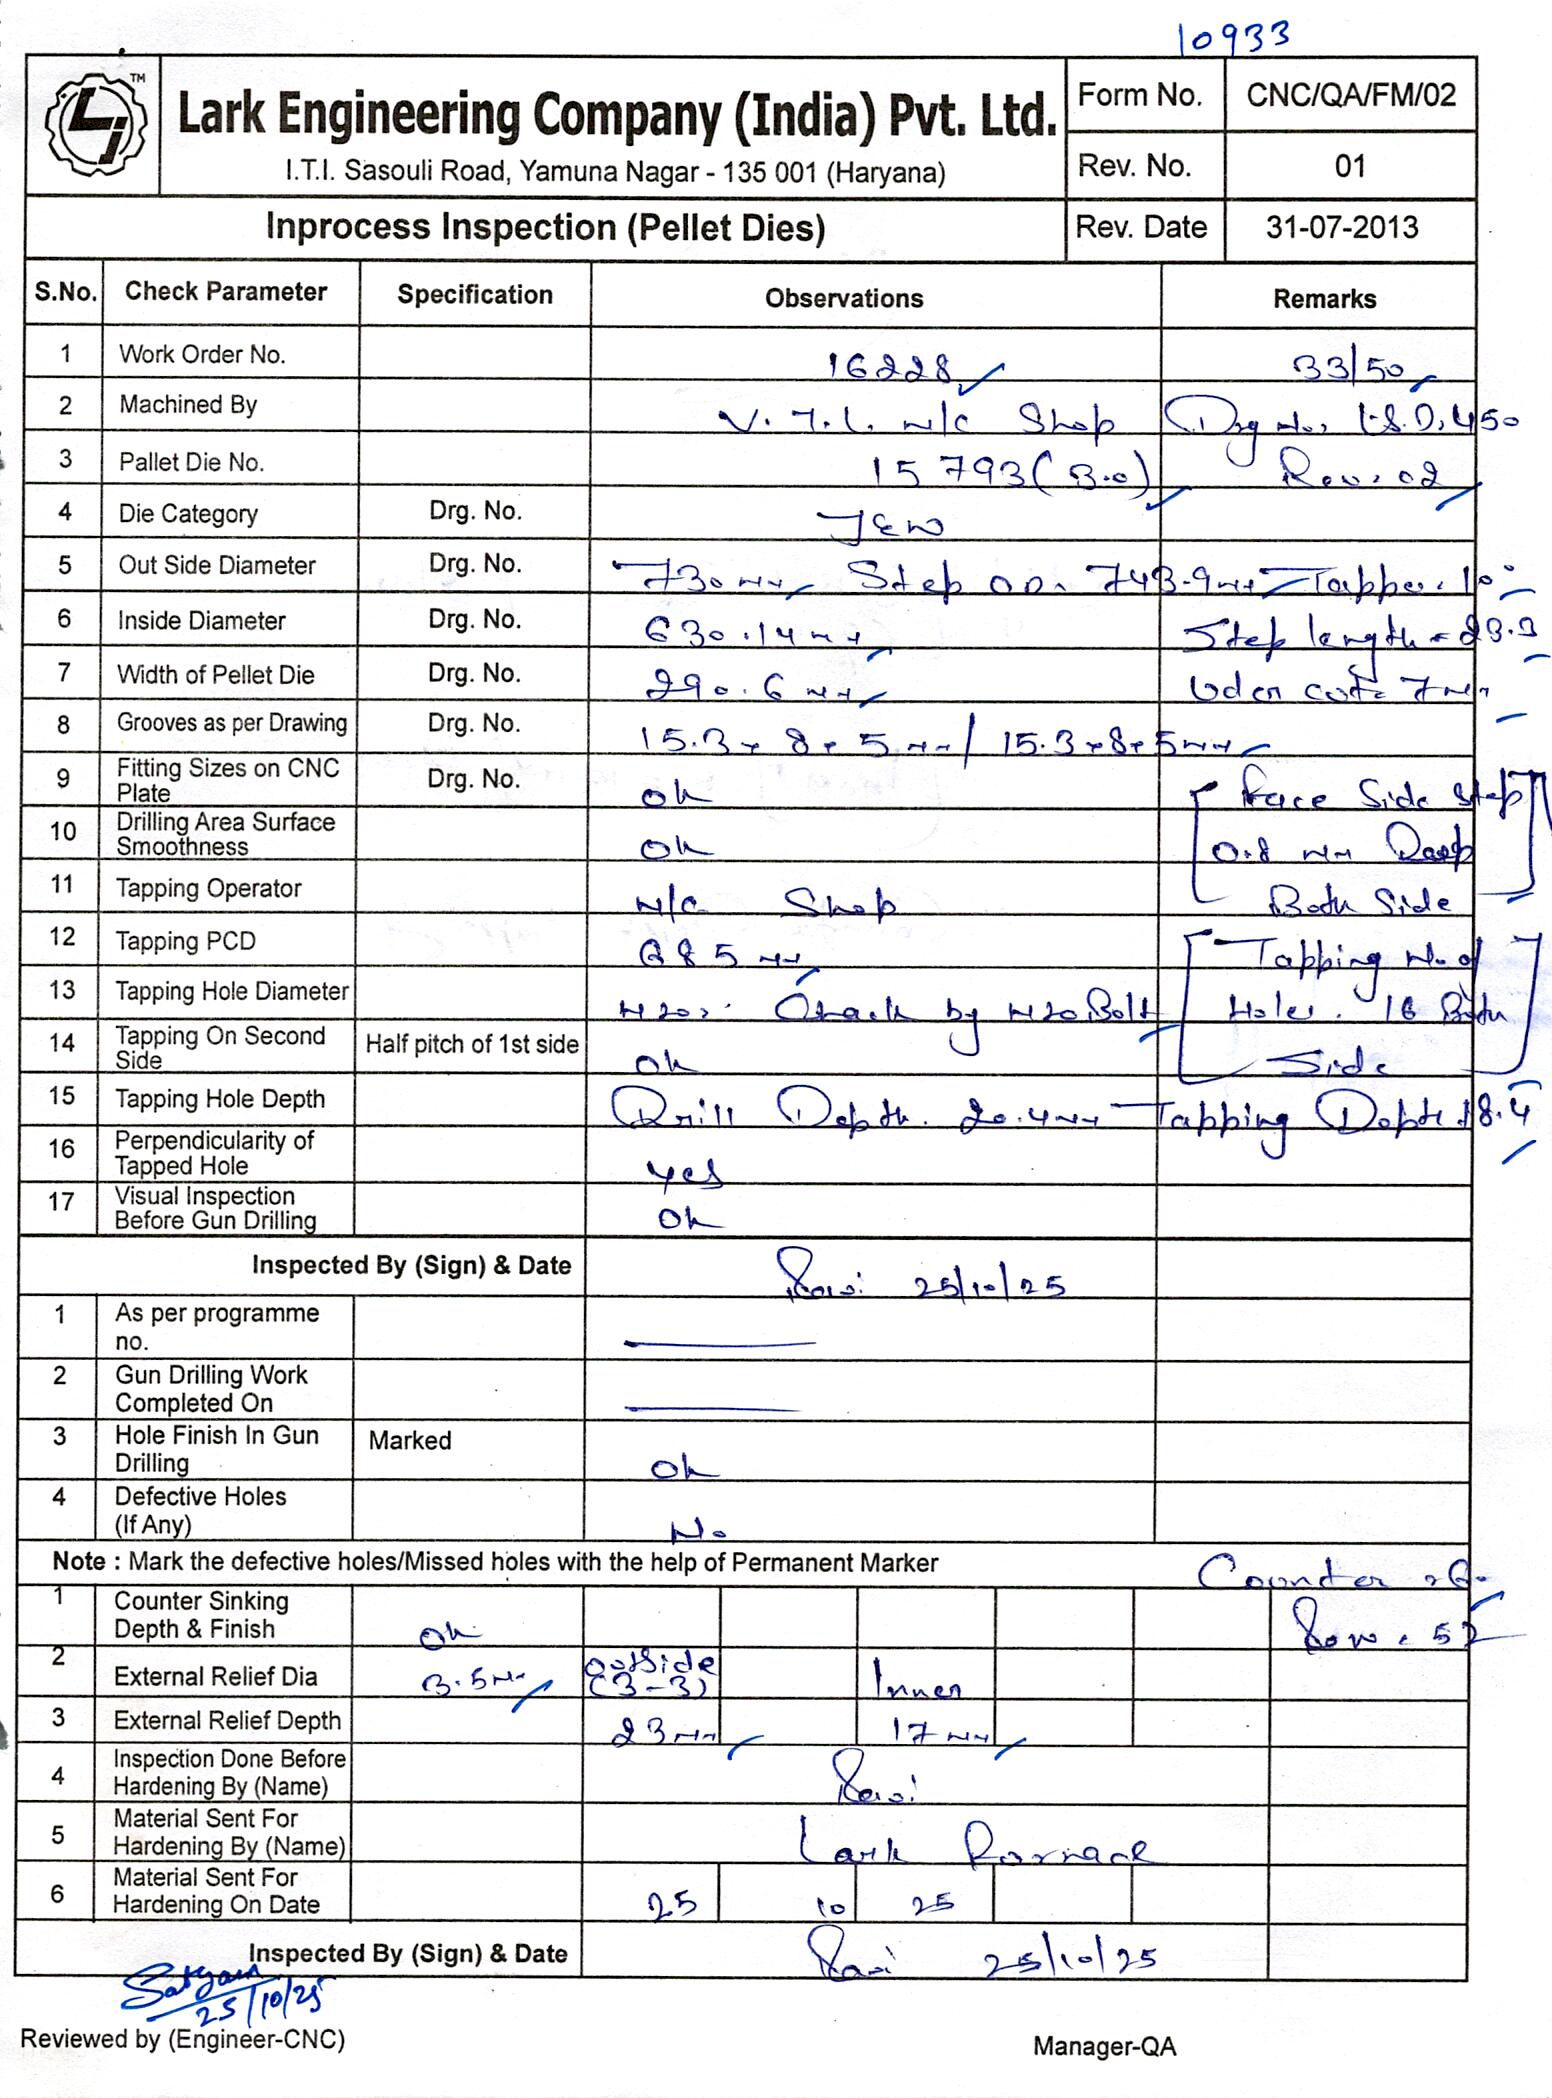 10933
Lark Engineering Company (India) Pvt. Ltd.
I.T.I. Sasouli Road, Yamuna Nagar - 135 001 (Haryana)
Form No. CNC/QA/FM/02
Rev. No. 01
Inprocess Inspection (Pellet Dies) Rev. Date 31-07-2013
S.No. Check Parameter Specification Observations Remarks
1 Work Order No. 16228 33/50
2 Machined By V.T.L. M/C Shop Drg No. L.S.D. 450
3 Pallet Die No. 15793 (3.0) Rev. 02
4 Die Category Drg. No. JEW
5 Out Side Diameter Drg. No. 730 mm Step OD. 743.9 mm Tapper. 10°
6 Inside Diameter Drg. No. 630.14 mm Step length = 23.3
7 Width of Pellet Die Drg. No. 290.6 mm Uder cut = 7 mm
8 Grooves as per Drawing Drg. No. 15.3 x 8 x 5 mm / 15.3 x 8 x 5 mm
9 Fitting Sizes on CNC Plate Drg. No. Ok Face Side Step
10 Drilling Area Surface Smoothness Ok 0.8 mm Deep
11 Tapping Operator M/C Shop Both Side
12 Tapping PCD 685 mm Tapping No. of
13 Tapping Hole Diameter M20 Check by M20 Bolt Holes. 16 Both
14 Tapping On Second Side Half pitch of 1st side Ok Side
15 Tapping Hole Depth Drill Depth. 20.4 mm Tapping Depth 18.4
16 Perpendicularity of Tapped Hole yes
17 Visual Inspection Before Gun Drilling Ok
Inspected By (Sign) & Date Ravi 25/10/25
1 As per programme no.
2 Gun Drilling Work Completed On
3 Hole Finish In Gun Drilling Marked Ok
4 Defective Holes (If Any) No
Note : Mark the defective holes/Missed holes with the help of Permanent Marker Counter
1 Counter Sinking Depth & Finish Ok Row = 52
2 External Relief Dia 3.5 mm outside (3-3) Inner
3 External Relief Depth 23 mm 17 mm
4 Inspection Done Before Hardening By (Name) Ravi
5 Material Sent For Hardening By (Name) Lark
6 Material Sent For Hardening On Date 25 10 25
Inspected By (Sign) & Date Ravi 25/10/25
Satyam
25/10/25
Reviewed by (Engineer-CNC) Manager-QA